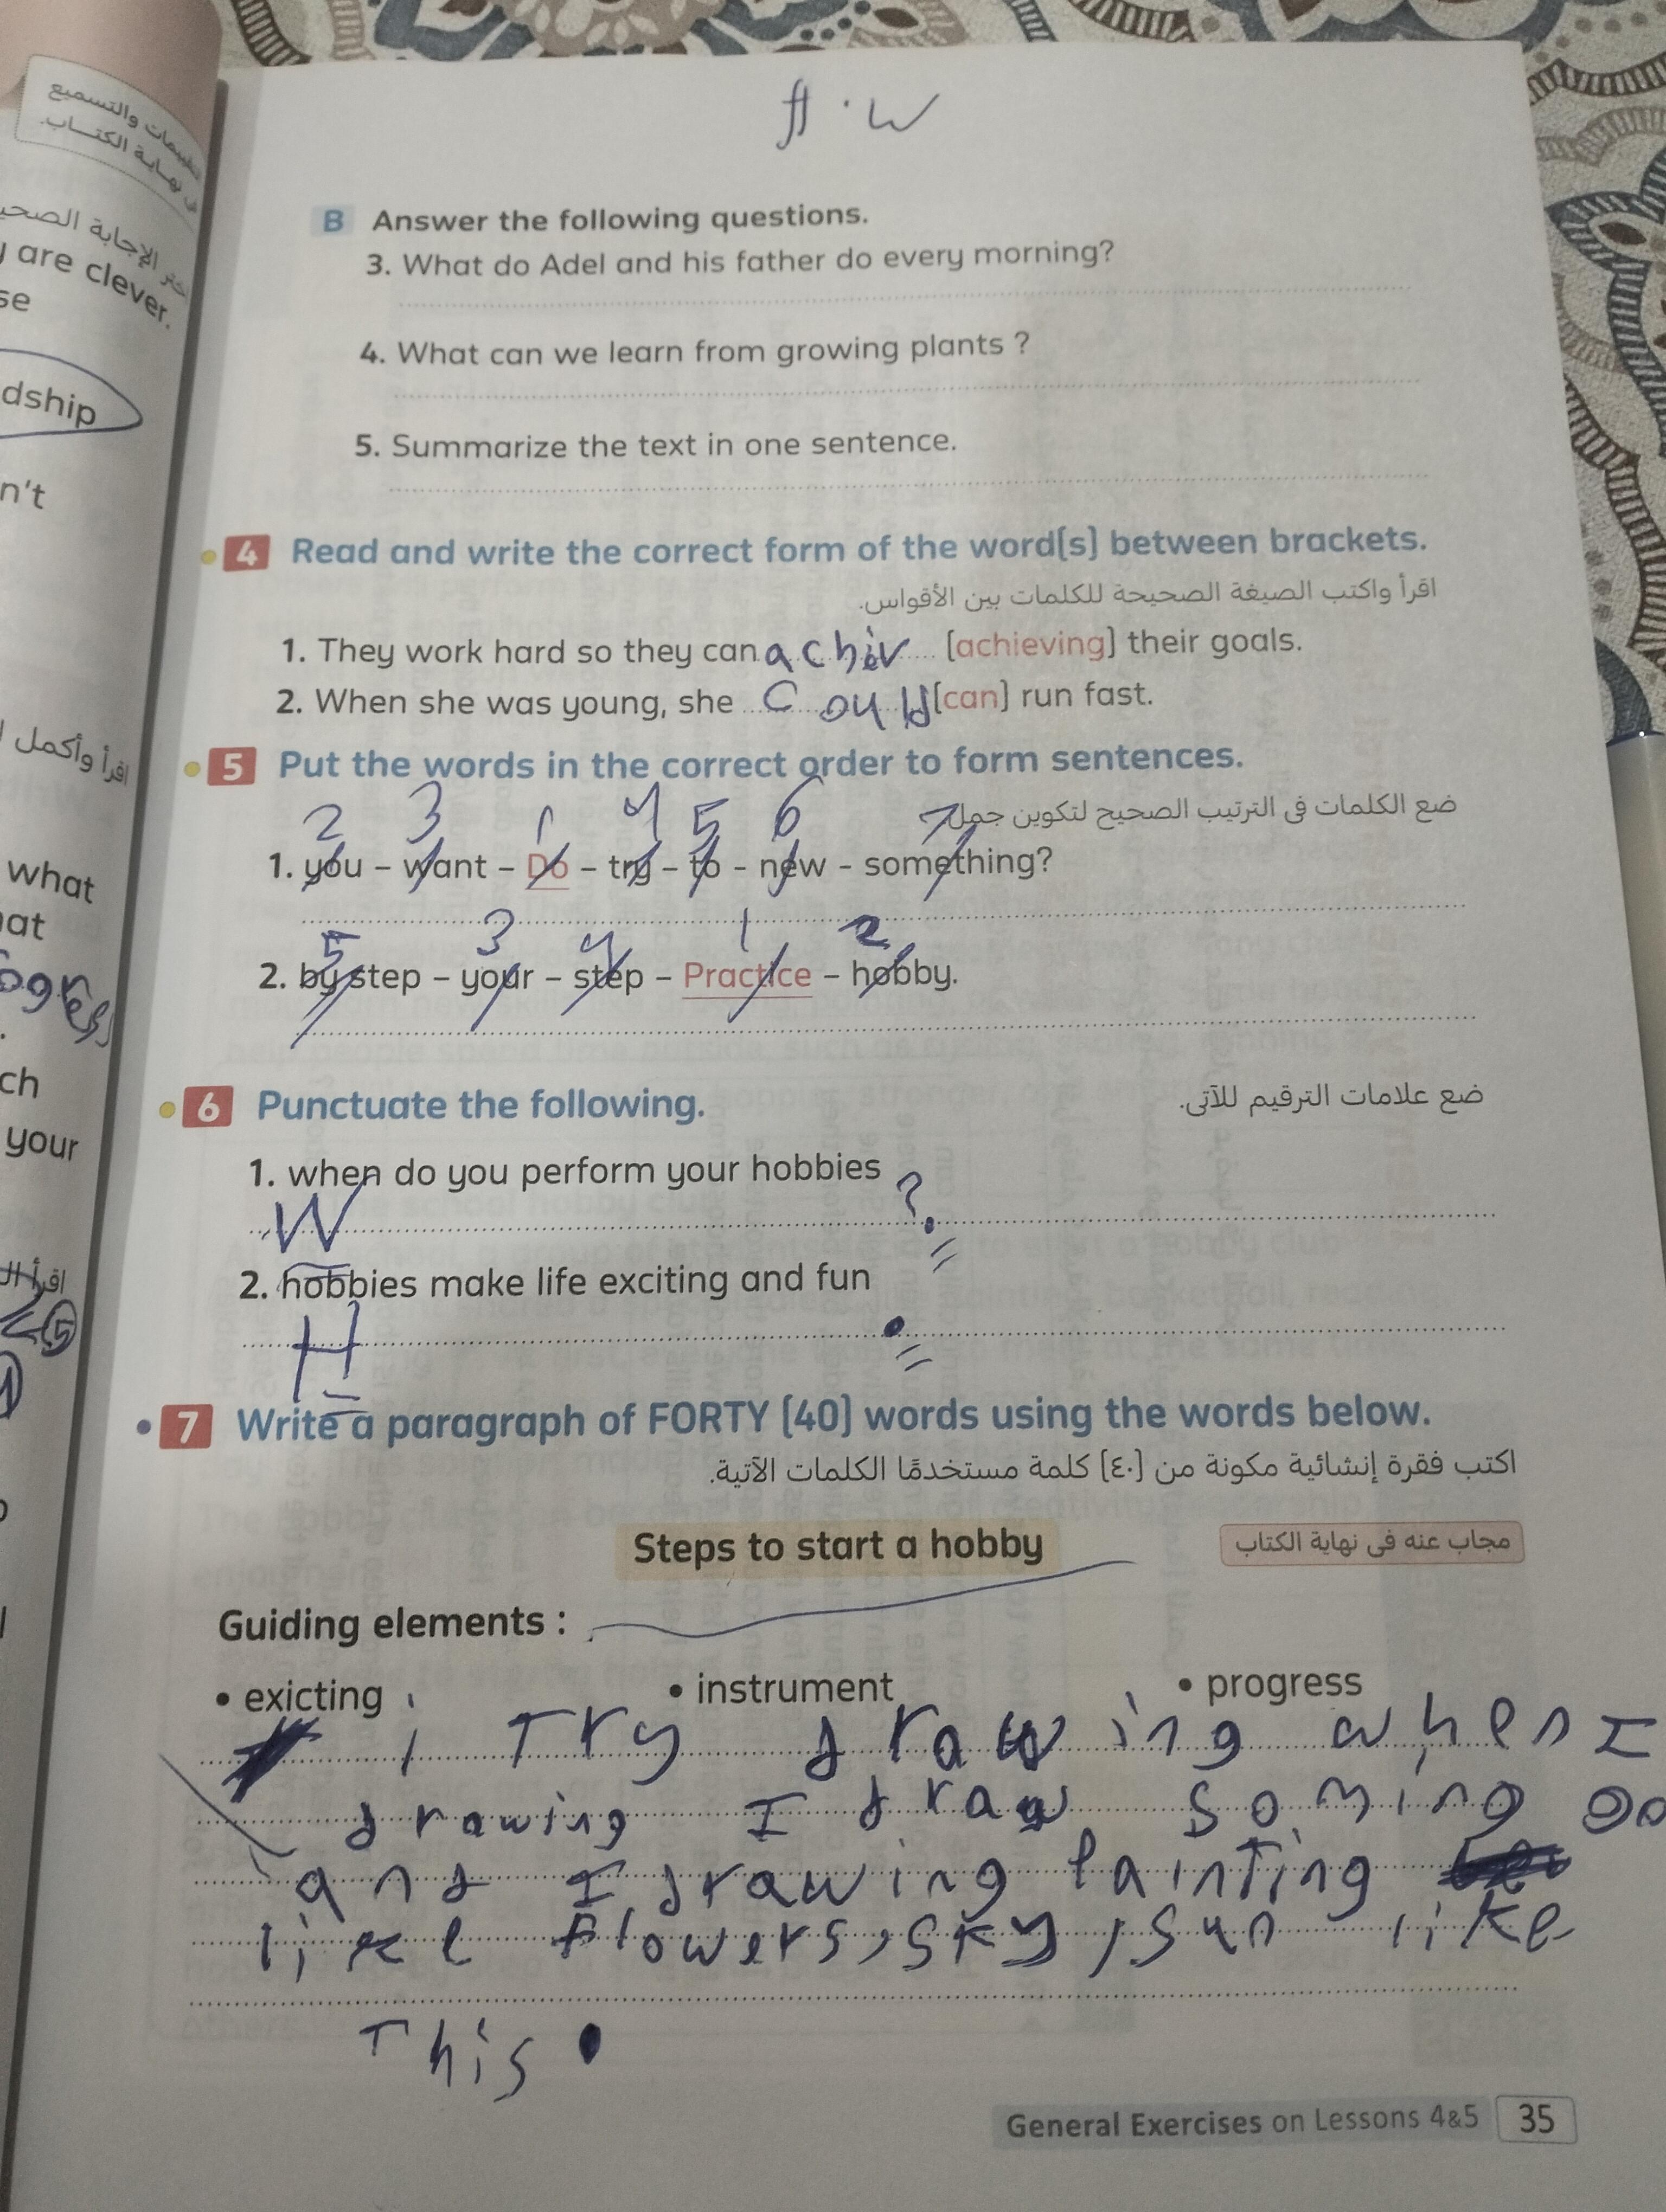 H.W
تقييمات والتسميع
فى نهاية الكتاب.
اختر الإجابة
are clever.
se
dship
n't
اقرأ وأكمل
what
at
ch
your
اقرأ
B Answer the following questions.
3. What do Adel and his father do every morning?
4. What can we learn from growing plants ?
5. Summarize the text in one sentence.
4 Read and write the correct form of the word(s) between brackets.
اقرأ واكتب الصيغة الصحيحة للكلمات بين الأقواس.
1. They work hard so they can achiv [achieving] their goals.
2. When she was young, she could [can] run fast.
5 Put the words in the correct order to form sentences.
ضع الكلمات فى الترتيب الصحيح لتكوين جمل.
2 3 1 4 5 6 7
1. you – want – Do – try – to - new - something?
5 3 4 1 2
2. by step – your – step – Practice – hobby.
6 Punctuate the following.
ضع علامات الترقيم للآتى.
1. when do you perform your hobbies
W ?
2. hobbies make life exciting and fun
H .
7 Write a paragraph of FORTY (40) words using the words below.
اكتب فقرة إنشائية مكونة من (٤٠) كلمة مستخدمًا الكلمات الآتية.
Steps to start a hobby
مجاب عنه فى نهاية الكتاب
Guiding elements :
• exicting • instrument • progress
i Try drawing when I
drawing I draw soming
and I drawing painting
like flowers, sky, sun like
This.
General Exercises on Lessons 4&5 35